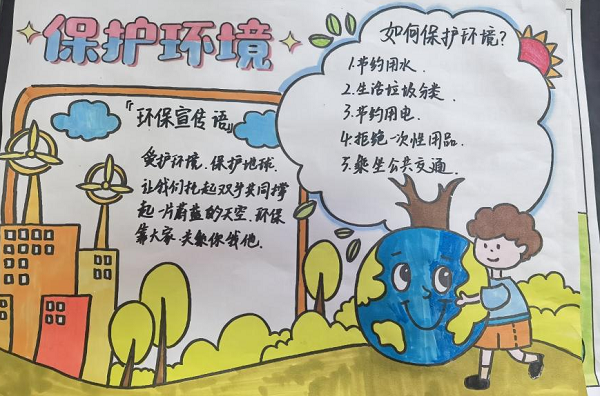 保护环境
『环保宣传语』
爱护环境、保护地球、
让我们托起双手共同撑
起一片蔚蓝的天空、环保
靠大家、关系你我他、
如何保护环境?
1.节约用水、
2.生活垃圾分类、
3.节约用电、
4.拒绝一次性用品、
5.乘坐公共交通、